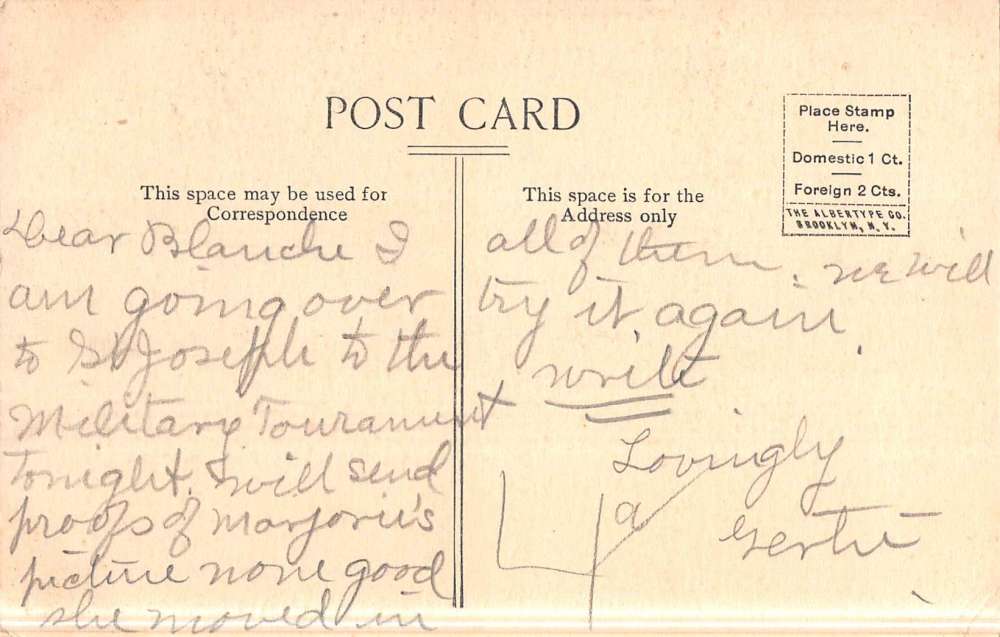 POST CARD
This space may be used for
Correspondence
This space is for the
Address only
Place Stamp
Here.
Domestic 1 Ct.
Foreign 2 Cts.
THE ALBERTYPE CO.
BROOKLYN, N. Y.
Dear Blanche I
am going over
to St Joseph to the
Military Tourament
Tonight. I will send
proofs of Marjorie's
picture none good
she moved in
all of them. we will
try it again
write
Lovingly
Gertie
4 a